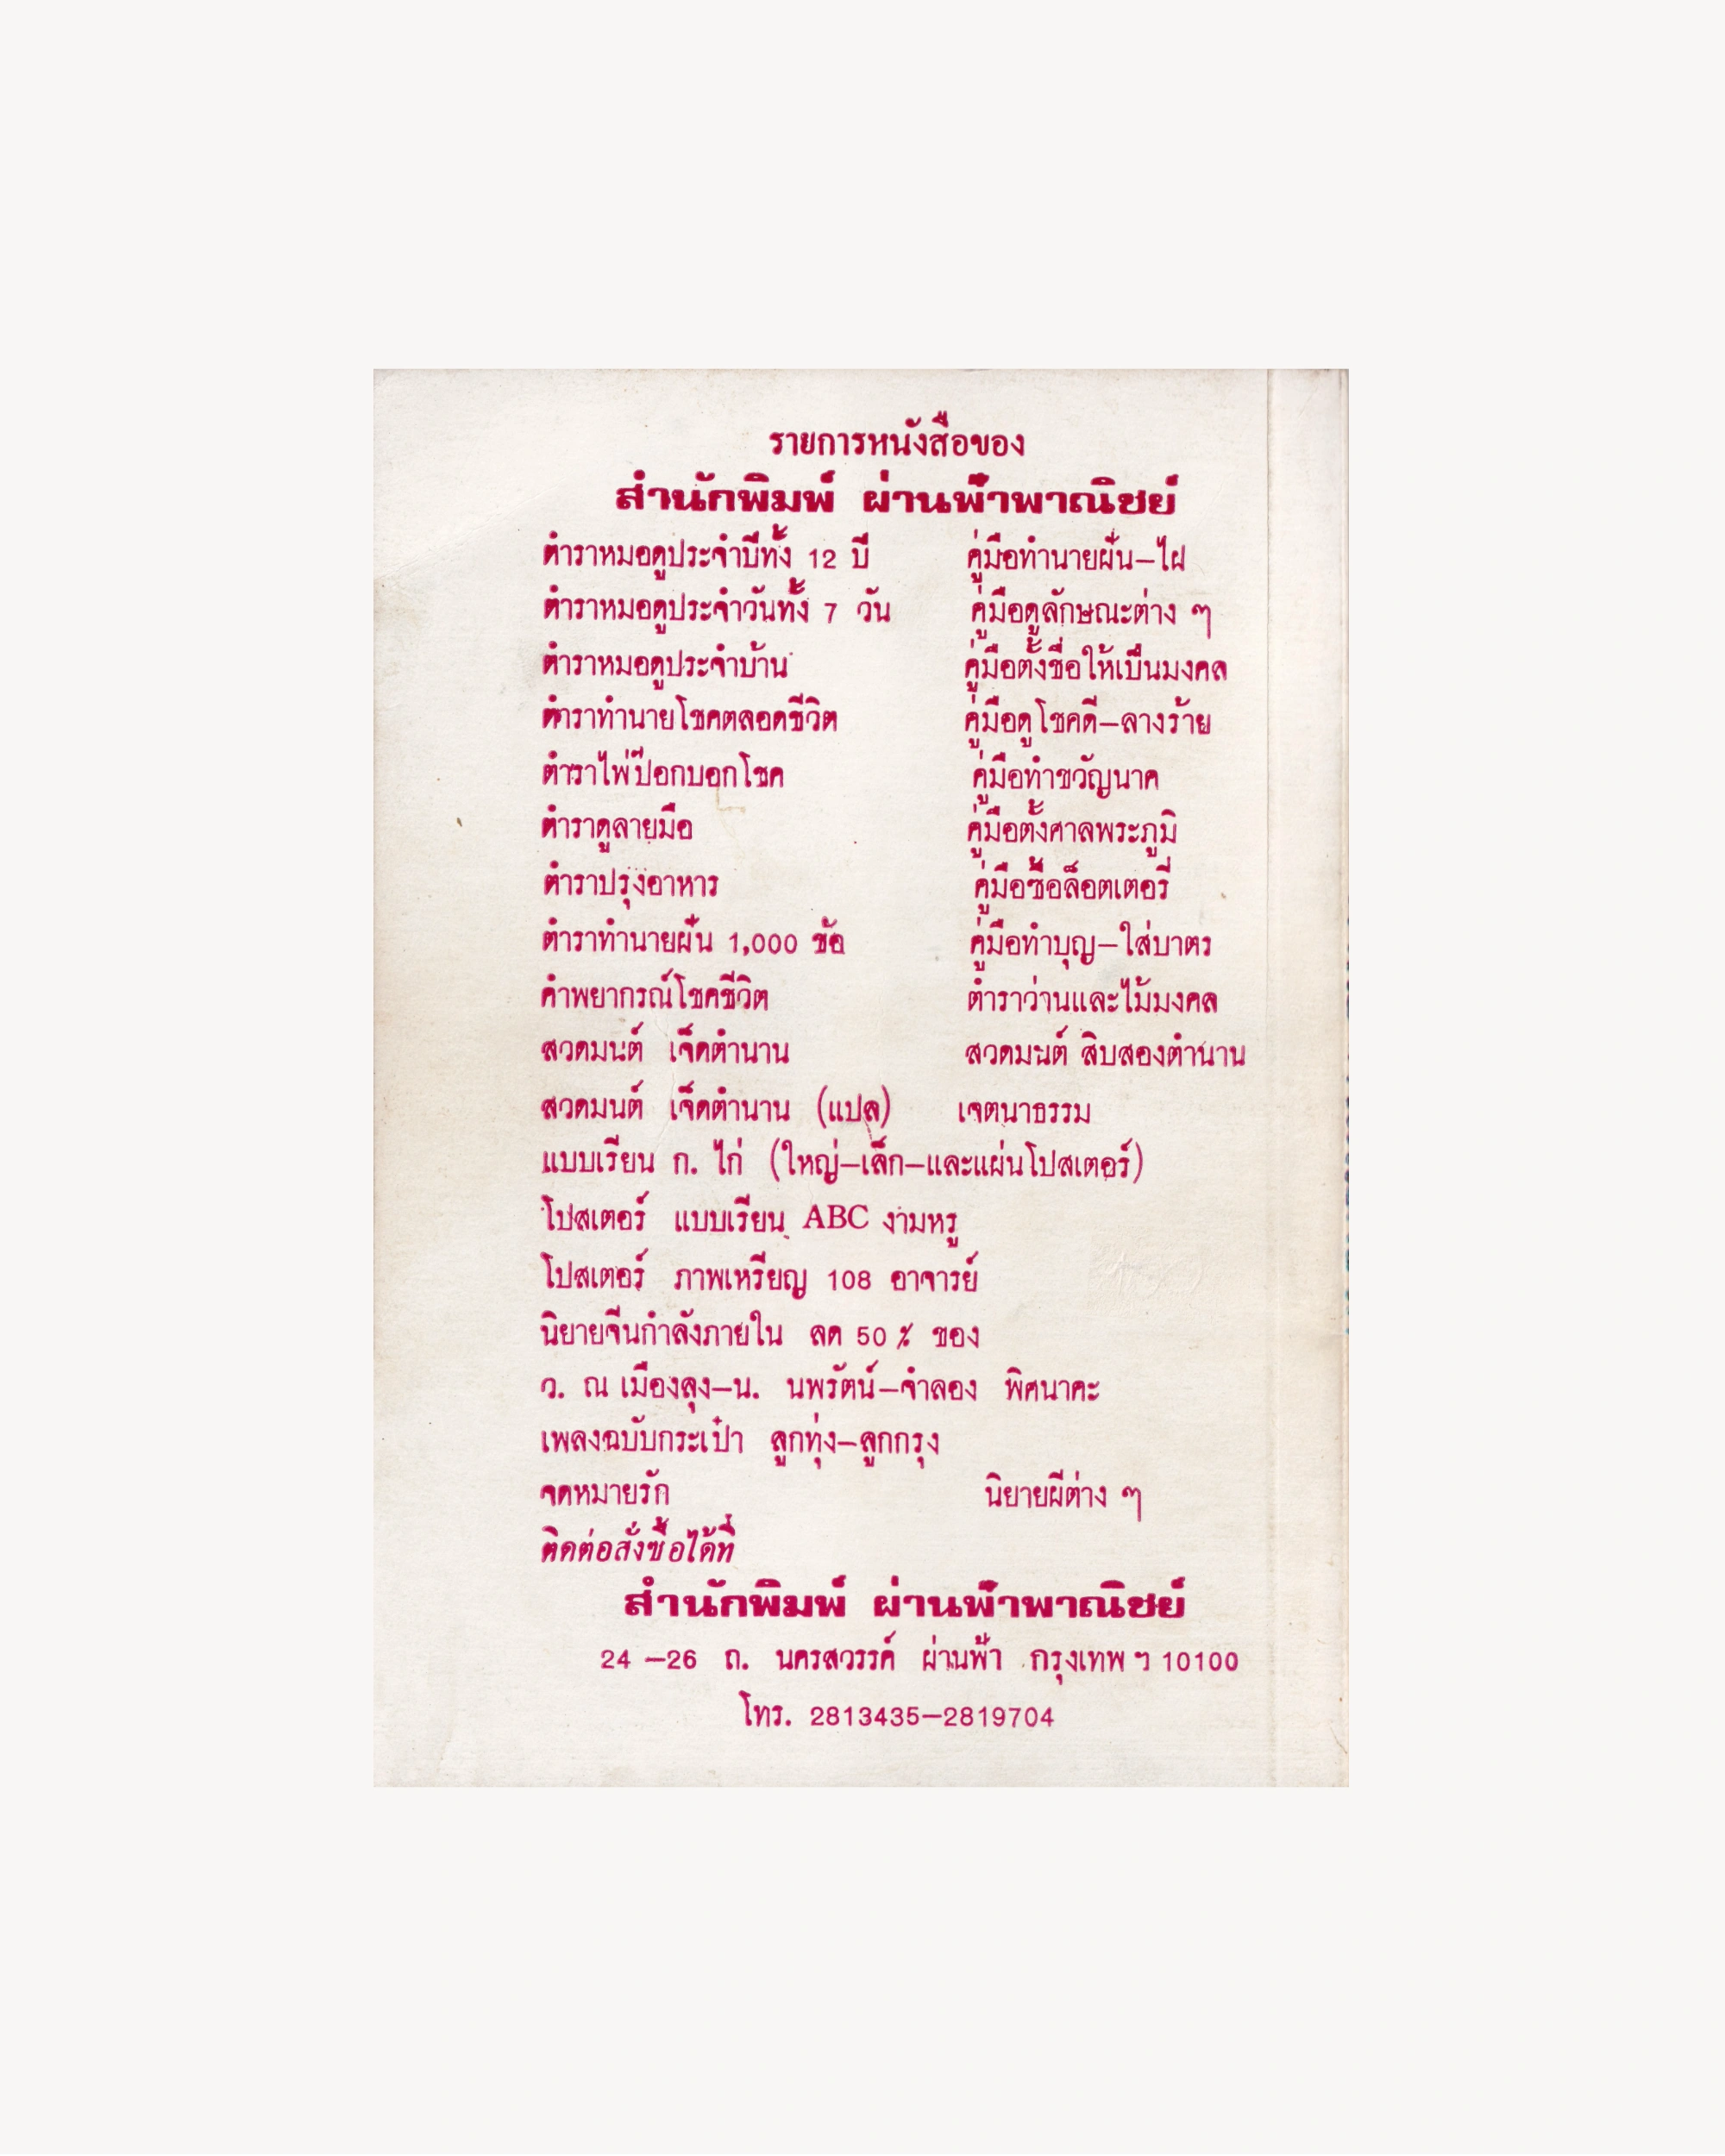 รายการหนังสือของ
สำนักพิมพ์ ผ่านฟ้าพาณิชย์
ตำราหมอดูประจำปีทั้ง 12 ปี คู่มือทำนายฝัน–ไฝ
ตำราหมอดูประจำวันทั้ง 7 วัน คู่มือดูลักษณะต่าง ๆ
ตำราหมอดูประจำบ้าน คู่มือตั้งชื่อให้เป็นมงคล
ตำราทำนายโชคตลอดชีวิต คู่มือดูโชคดี–ลางร้าย
ตำราไพ่ป๊อกบอกโชค คู่มือทำขวัญนาค
ตำราดูลายมือ คู่มือตั้งศาลพระภูมิ
ตำราปรุงอาหาร คู่มือซื้อล็อตเตอรี่
ตำราทำนายฝัน 1,000 ข้อ คู่มือทำบุญ–ใส่บาตร
คำพยากรณ์โชคชีวิต ตำราว่านและไม้มงคล
สวดมนต์ เจ็ดตำนาน สวดมนต์ สิบสองตำนาน
สวดมนต์ เจ็ดตำนาน (แปล) เจตนาธรรม
แบบเรียน ก. ไก่ (ใหญ่–เล็ก–และแผ่นโปสเตอร์)
โปสเตอร์ แบบเรียน ABC งามหรู
โปสเตอร์ ภาพเหรียญ 108 อาจารย์
นิยายจีนกำลังภายใน ลด 50 % ของ
ว. ณ เมืองลุง–น. นพรัตน์–จำลอง พิศนาคะ
เพลงฉบับกระเป๋า ลูกทุ่ง–ลูกกรุง
จดหมายรัก นิยายผีต่าง ๆ
ติดต่อสั่งซื้อได้ที่
สำนักพิมพ์ ผ่านฟ้าพาณิชย์
24 –26 ถ. นครสวรรค์ ผ่านฟ้า กรุงเทพ ฯ 10100
โทร. 2813435–2819704